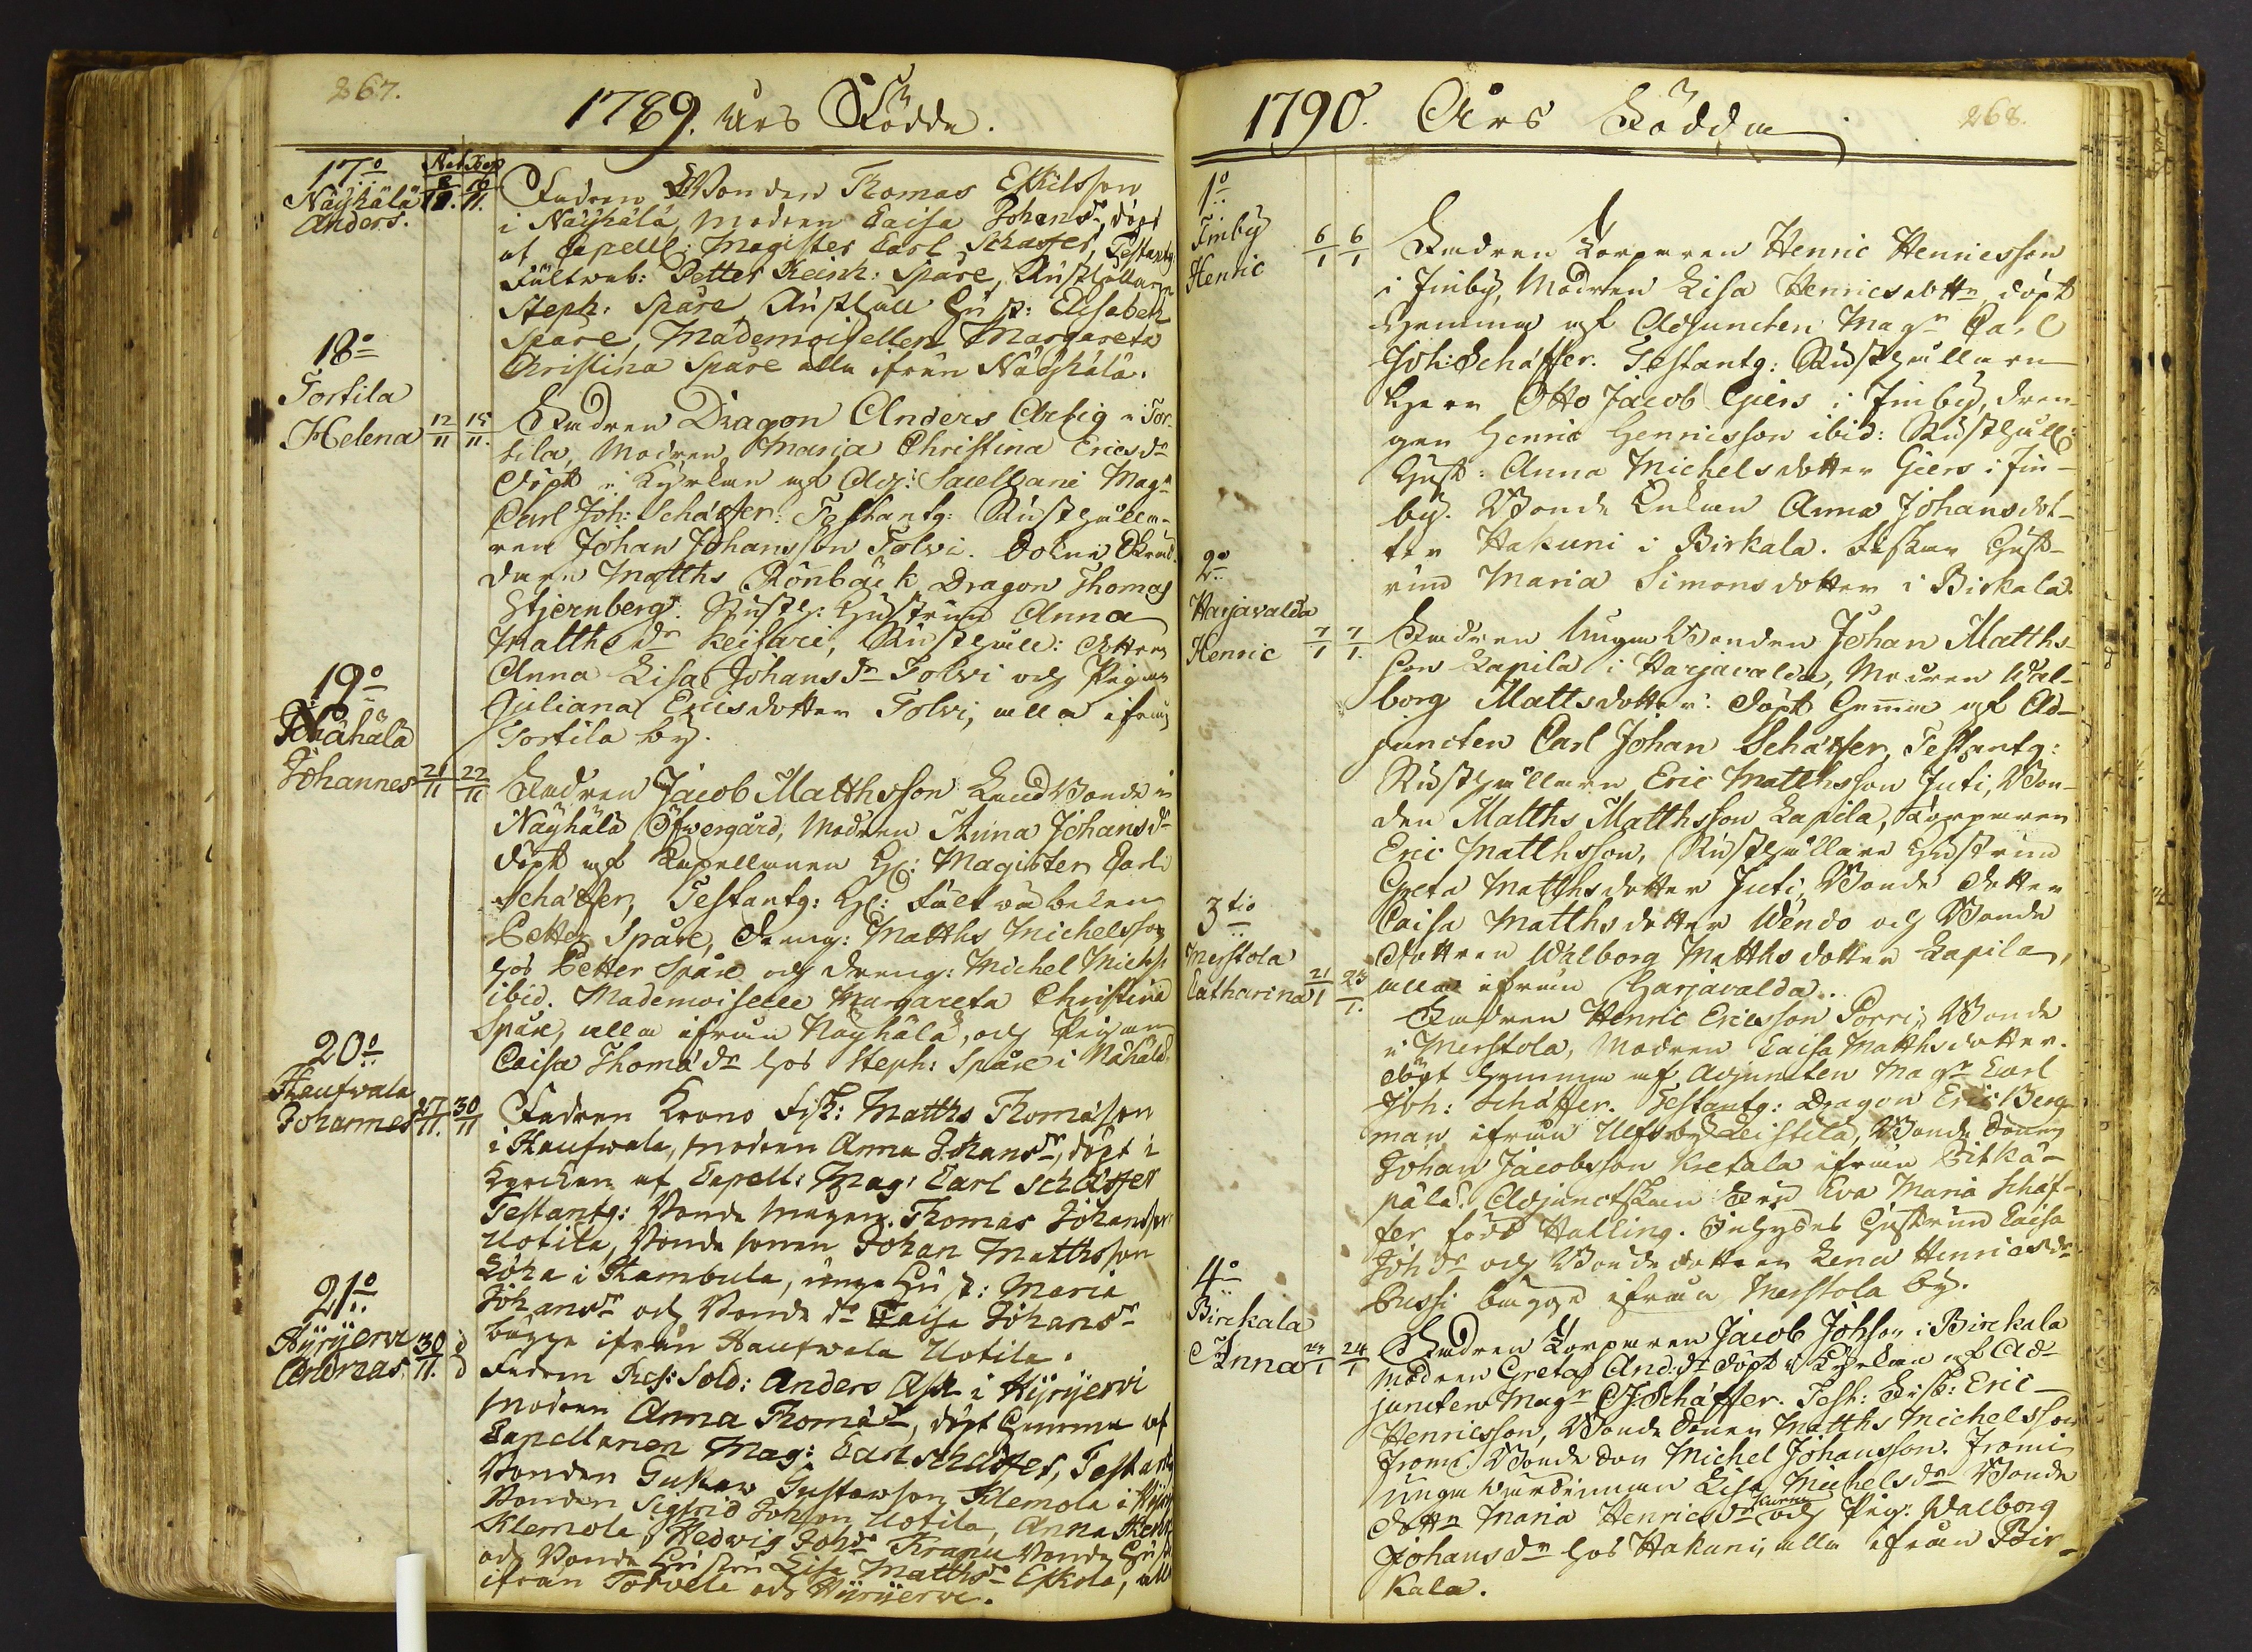 267.
1789. Års Födde.
17o Nat. Bapt.
Näyhälä 8/11. 10/11.
Anders.
Fadren Bonden Thomas Eskilsson
i Näyhälä, Modren Caisa Johansdr, döpt
af Capell: Magister Carl Schæffer, Testantg:
Fältweb: Petter Heinr: Spåre, Rusthollaren
Steph: Spåre, Rusthåll Hust: Elisabeth
Spåre, Mademoisellen Margareta
Christina Spåre alla ifrån Näyhälä.
18o
Tortila
Helena 12/11 15/11.
Fadren Dragon Anders Artig i Tor-
tila, Modren Maria Christina Ericsdr
Döpt i Kyrkan af Adj: Sacellani Magr
Carl Joh: Schæffer: Testantg: Rusthålla-
ren Johan Johansson Tolvi.
Matths Rönbäck Dragon Thomas
Stjernberg. Rusth: Hustrun Anna
Matthsdr Keisari, Rusthåll: dottren
Anna Lisa Johansdr Tolvi och Pigan
Juliana Ericsdotter Tolvi, alla ifrån
Tortila by.
19o
Näÿhälä
Johannes 21/11 22/11
Fadren Jacob Matthsson Landbonde i
Näyhälä Öfvergård, Modren Anna Johansdr
döpt af Capellanen H: Magister Carl
Schæffer, Testantg: H: Fältväbelen
Petter Spåre, Dreng: Matths Michelsson
hos Petter Spåre och Dreng: Michel Michs:
ibid. Mademoiselle Margareta Christina
Spåre, alla ifrån Näyhälä, och Pigan
Caisa Thomædr hos Steph: Spåre i Nähälä.
20o
Haufwala
Johannes 27/11. 30/11
Fadren Krono Fisk: Matths Thomasson
i Haufwala, modren Anna Johansdr, döpt i
Kyrckan af Capell: Mag: Carl Schæffer
Testantg: Bonde Mågen Thomas Johansson
Uotila, Bonde sonen Johan Matthsson
Löha i Kambula, unga Hust: Maria
Johansdr och Bonde dr Caisa Johansdr
bägge ifrån Haufwala Uotila.
21o
Hyryjerwi 30/11.
Andreas.
Fadren Res: Sold: Anders Ask i Hyryjerwi
Modren Anna Thomædr, döpt hemma af
Capellanen Mag: Carl Schæffer, Testantg
Bonden Gustav Gustawson Klemola i Hyry
Bonden Sigfrid Johson Uotila, Anna
Klemola, Hedwig Johdr Kranu Bonde Hust
och Bonde Hustru Lisa Matthsdr Eskola, all
ifrån Torvela och Hyryjerwi.
1790. Års Födda
268.
1o
Finby
Henric 6/1 6/1
Fadren Torparen Henric Henricsson
i Finby, Modren Lisa Henricsdottr, döpt
hemma af Adjuncten Magr Carl
Joh: Schæffer. Testantg: Rusthållaren
Herr Otto Jacob Giers i Finby, Dren-
gen Henric Henricsson ibid: Rusthåll:
Hust: Anna Michelsdotter Giers i Fin-
by. Bonde Enkan Anna Johansdot-
ter Hakuni i Birkala. Fiskar Hust-
run Maria Simonsdotter i Birkala.
2o
Harjavalda
Henric 7/1 7/1.
Fadren Unga Bonden Johan Matths-
son Lapila i Harjavalda, Modren Wal-
borg Mattsdotter: döpt hemma af Ad-
juncten Carl Johan Schæffer, Testantg:
Rusthållaren Eric Matthsson Juti, Bon-
den Matths Matthsson Lapila, Torparen
Eric Matthsson, Rusthållare Hustrun
Greta Matthsdotter Juti, Bonde dotter
Caisa Matthsdotter Wendo och Bonde
dottren Walborg Matthsdotter Lapila,
alla ifrån Harjavalda.
3tio
Merstola
Catharina 21/1 23/1.
Fadren Henric Ericsson Porri, Bonde
i Merstola, Modren Caisa Matthsdotter.
döpt hemma af Adjuncten Magr Carl
Joh: Schæffer. Testantg: Dragon Eric Berg-
man ifrån Ulfsby Leistila, Bonde Sonen
Johan Jacobsson Kretala ifrån Pitkä-
pälä. Adjunctskan Fru Eva Maria Schæf-
fer född Halling. Inhyses Hustrun Caisa
Johdr och Bondedottren Lena Henricsdr
Pussi bägge ifrån Merstola by.
4o
Birckala
Anna 24/1 24/1
Fadren Torparen Jacob Johsson i Birckala
Modren Greta And:dr döpt i Kyrkan af Ad-
juncten Magr C J: Schæffer. Test: Fisk: Eric
Henricsson, Bonde Sonen Matths Michelsson
Fromi. Bonde Son Michel Johansson. Fromi
unga Wärdinnan Lisa Michelsdr Bonde
Dottr Maria Henricsdr och Pig: Walborg
Johansdr hos Hakuni, alla ifrån Bir-
kala.